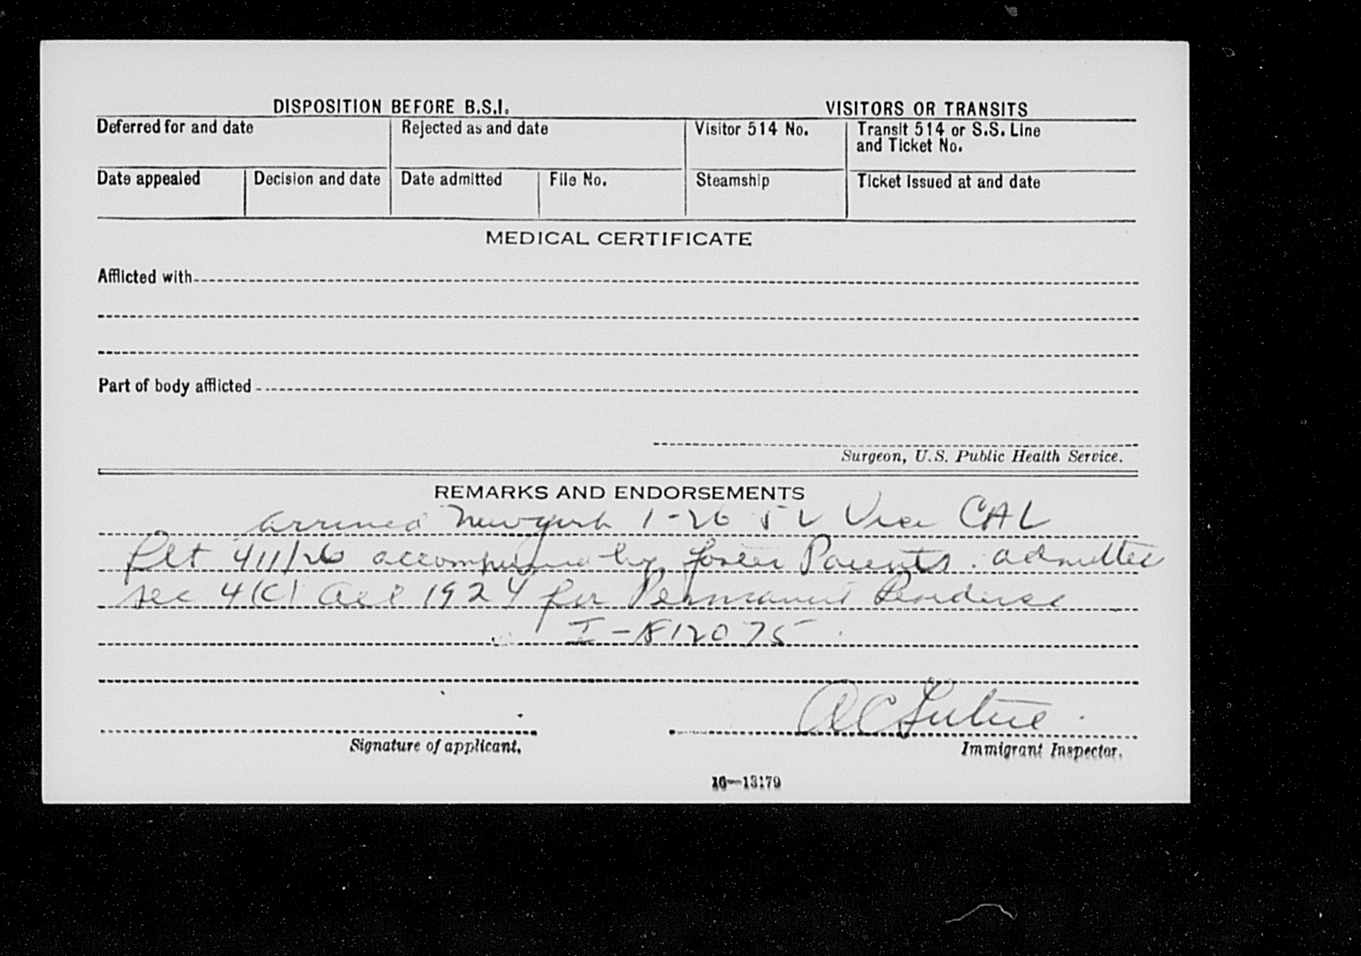 DISPOSITION BEFORE B.S.I.
VISITORS OR TRANSITS
Deferred for and date
Rejected as and date
Visitor 514 No.
Transit 514 or S.S. Line
and Ticket No.
Date appealed
Decision and date
Date admitted
File No.
Steamship
Ticket issued at and date
MEDICAL CERTIFICATE
Afflicted with
Part of body afflicted
Surgeon, U.S. Public Health Service.
REMARKS AND ENDORSEMENTS
arrived New York 1-26 52 Visa CAL
Flt 411/26 accompanied by foster Parents. admitted
sec 4(c) act 1924 for Permanent Residence
I-812075
A C
Signature of applicant,
Immigrant Inspector.
16—13179